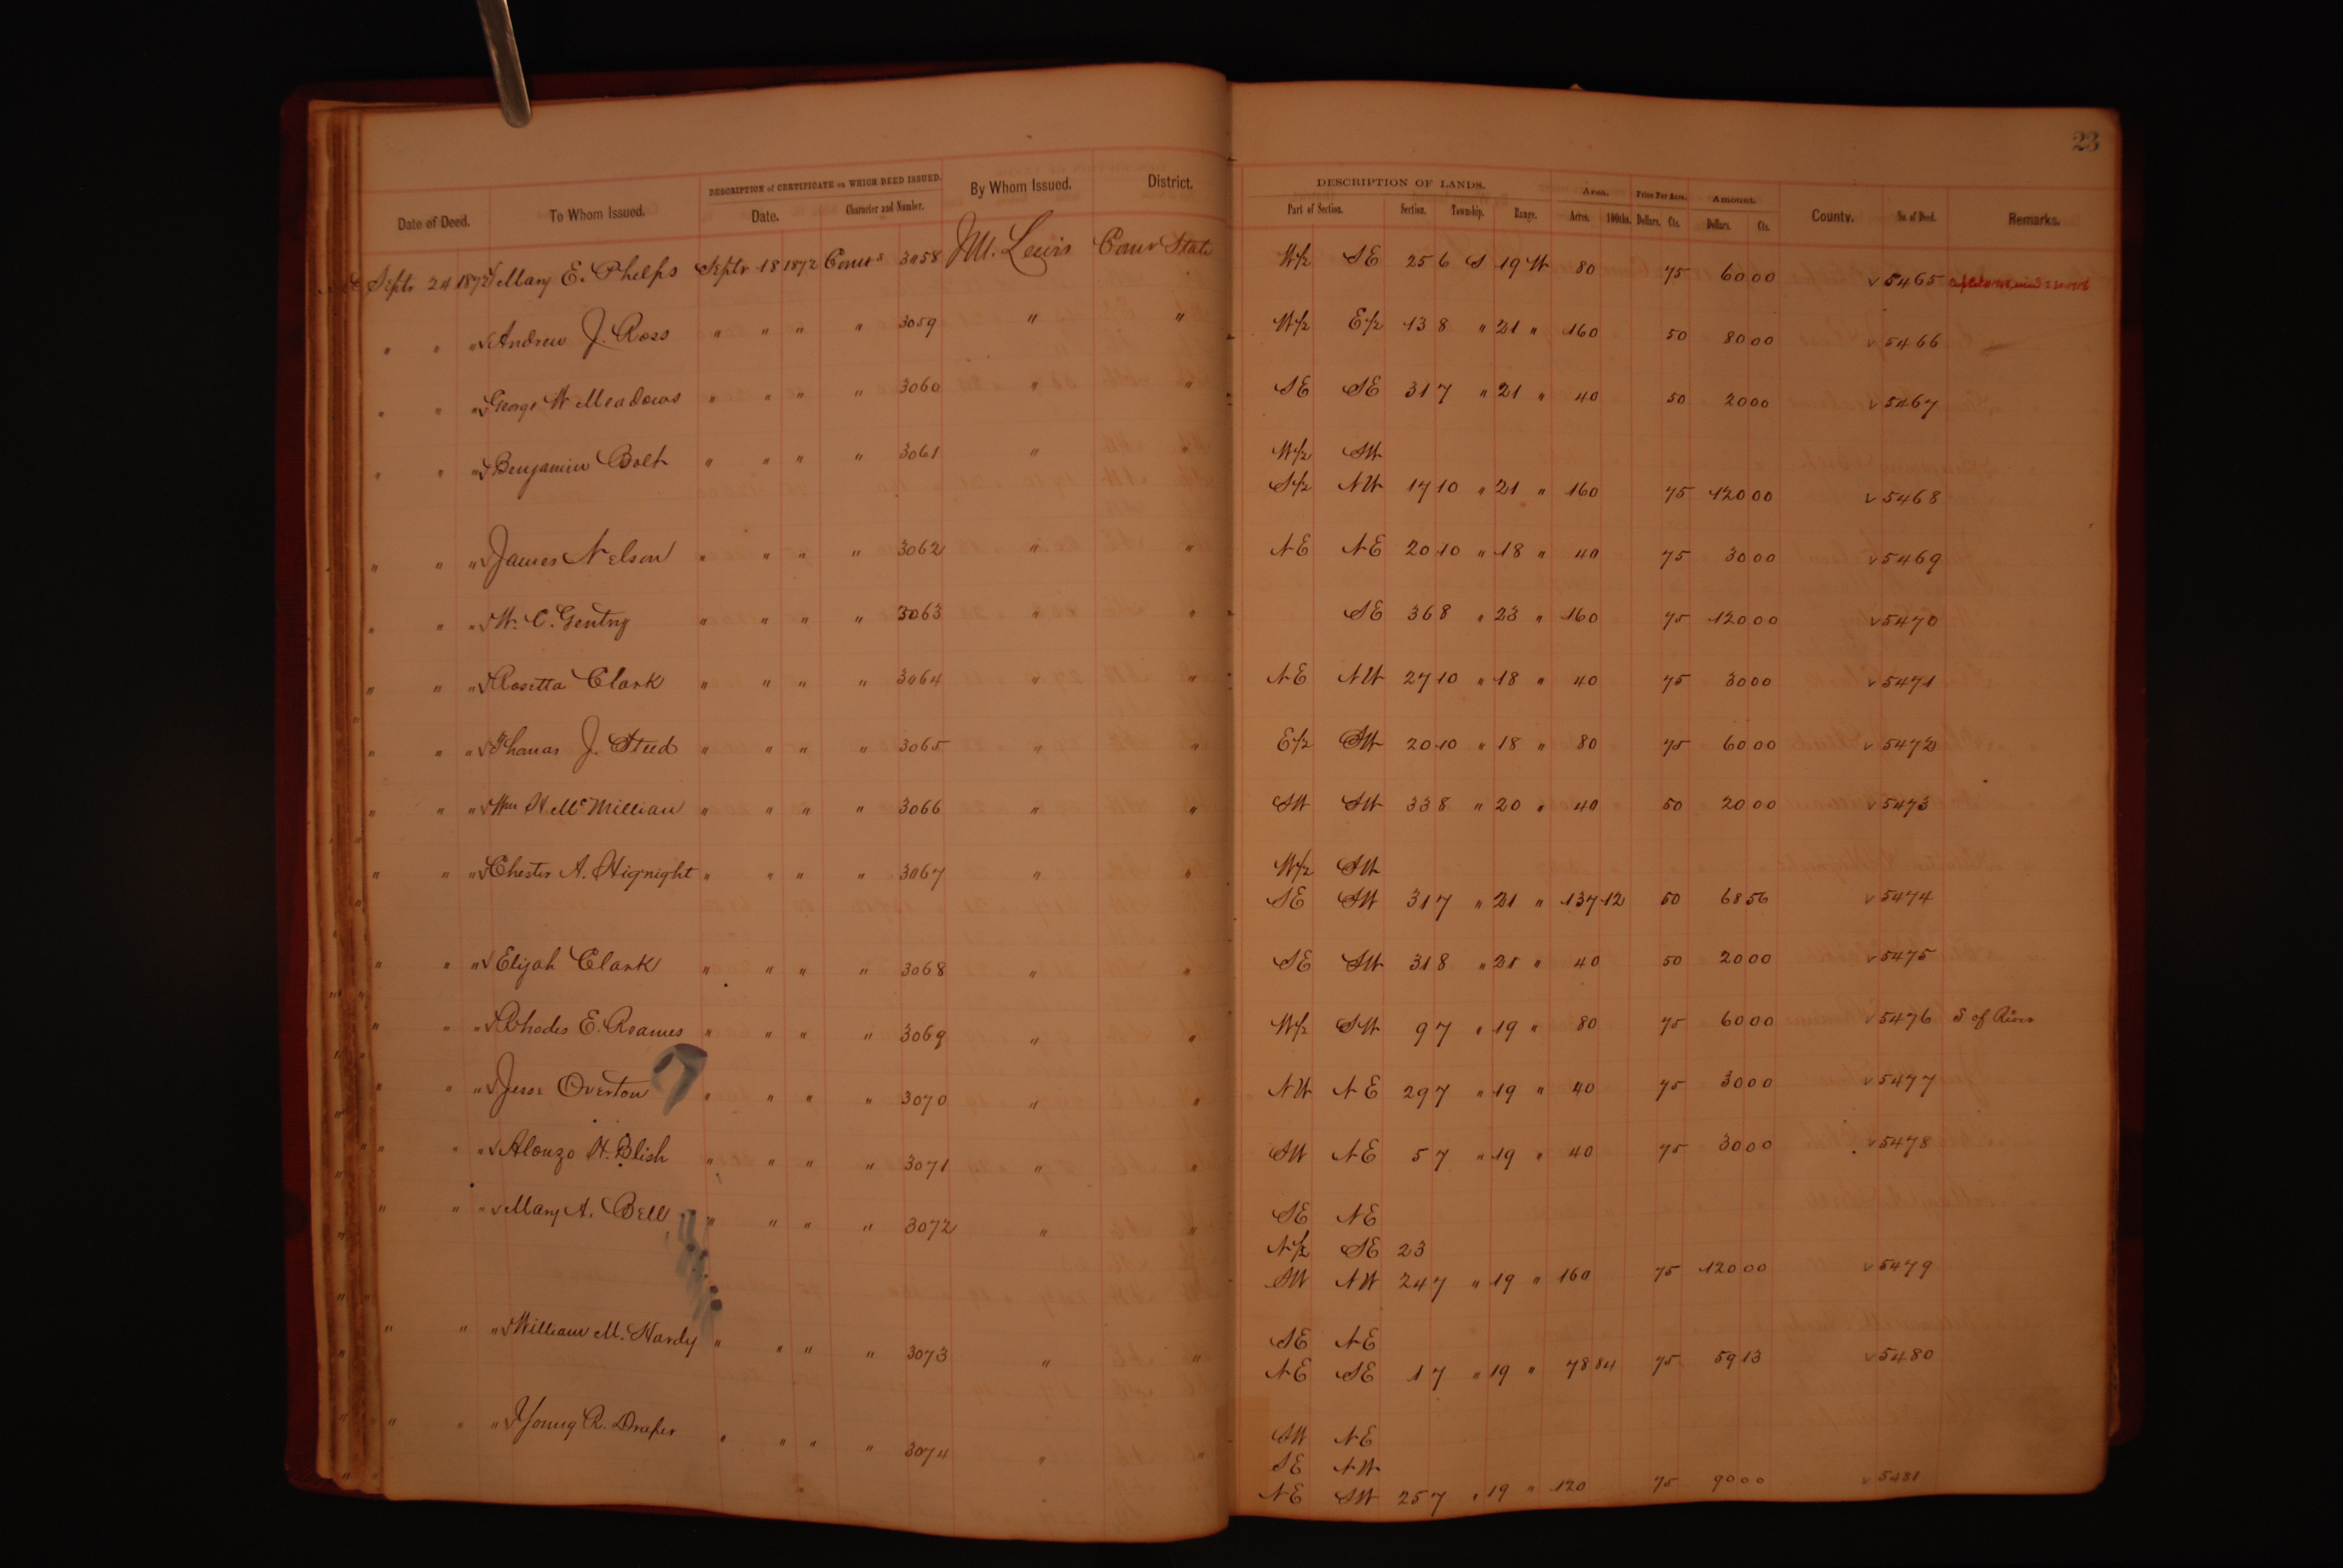 23
DESCRIPTION of CERTIFICATE on WHICH DEED ISSUED. By Whom Issued. District. DESCRIPTION OF LANDS. Area. Price Per Acre. Amount. County. No. of Deed. Remarks.
Date of Deed. To Whom Issued. Date. Character and Number. Part of Section. Section. Township. Range. Acres. 100ths. Dollars. Cts. Dollars. Cts.
Septr 24 1872 Mary E. Phelps Septr 18 1872 Comrs 3058 M. Lewis Comr State W/2 SE 25 6 S 19 W 80 75 60 00 5465
" " " Andrew J. Ross " " " " 3059 " " W/2 E/2 13 8 " 21 " 160 50 80 00 5466
" " " George W Meadows " " " " 3060 " " SE SE 31 7 " 21 " 40 50 20 00 5467
" " " Benjamin Bolt " " " " 3061 " " W/2 SW
S/2 NW 17 10 " 21 " 160 75 120 00 5468
" " " James Nelson " " " " 3062 " " NE NE 20 10 " 18 " 40 75 30 00 5469
" " " W. C. Gentry " " " " 3063 " SE 36 8 " 23 " 160 75 120 00 5470
" " " Rosetta Clark " " " " 3064 " " NE NW 27 10 " 18 " 40 75 30 00 5471
" " " Thomas J. Steed " " " " 3065 " " E/2 SW 20 10 " 18 " 80 75 60 00 5472
" " " Wm H. McMillian " " " " 3066 " " SW SW 33 8 " 20 " 40 50 20 00 5473
" " " Chester A. Hignight " " " " 3067 " " W/2 SW
SE SW 31 7 " 21 " 137 12 50 68 56 5474
" " " Elijah Clark " " " " 3068 " " SE SW 31 8 " 21 " 40 50 20 00 5475
" " " Rhodes E. Reames " " " " 3069 " " W/2 SW 9 7 " 19 " 80 75 60 00 5476 S of River
" " " Jesse Overton " " " " 3070 " " NW NE 29 7 " 19 " 40 75 30 00 5477
" " " Alonzo H. Blish " " " " 3071 " " SW NE 5 7 " 19 " 40 75 30 00 5478
" " " Mary A. Bell " " " " 3072 " " SE NE
N/2 SE 23
SW NW 24 7 " 19 " 160 75 120 00 5479
" " " William M. Hardy " " " " 3073 " " SE NE
NE SE 1 7 " 19 " 78 84 75 59 13 5480
" " " Young R. Draper " " " " 3074 " " SW NE
SE NW
NE SW 25 7 " 19 " 120 75 90 00 5481